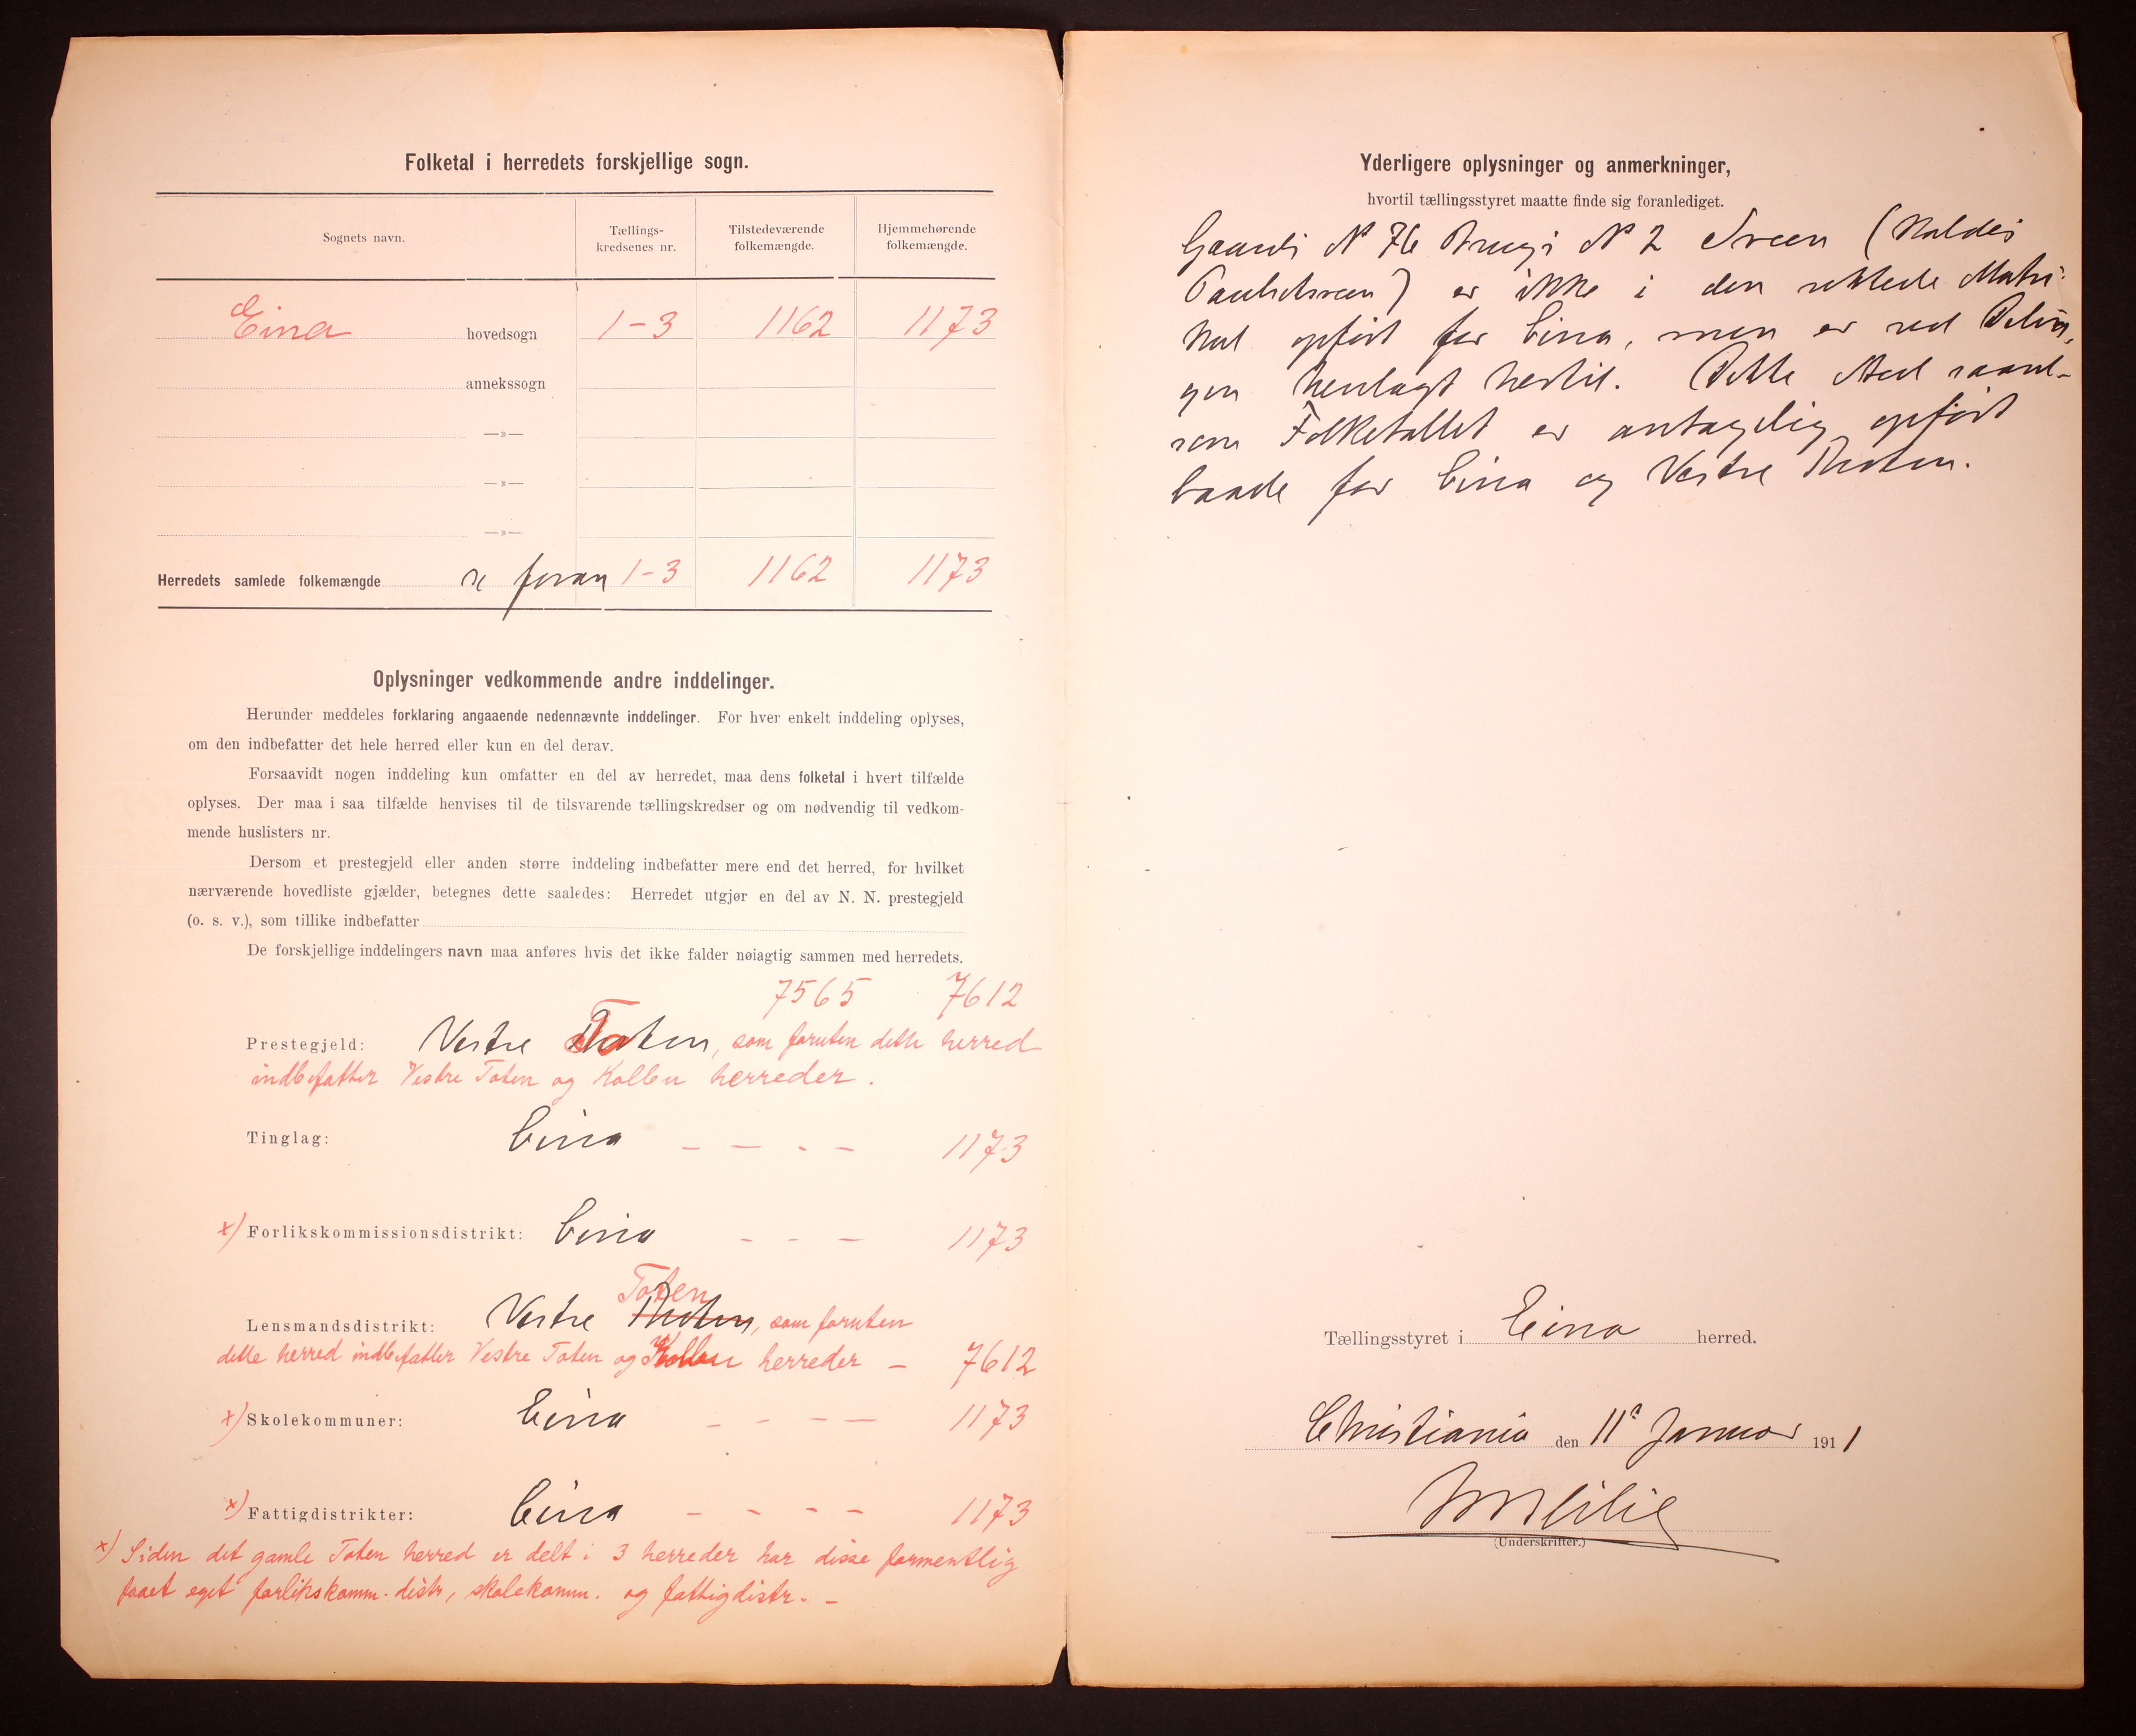 Folketal i herredets forskjellige sogn.
Sognets navn. Tællings-kredsenes nr. Tilstedeværende folkemængde. Hjemmehørende folkemængde.
Eina hovedsogn 1-3 1162 1173
annekssogn
—»—
—»—
—»—
Herredets samlede folkemængde se foran 1-3 1162 1173
Oplysninger vedkommende andre inddelinger.
Herunder meddeles forklaring angaaende nedennævnte inddelinger. For hver enkelt inddeling oplyses,
om den indbefatter det hele herred eller kun en del derav.
Forsaavidt nogen inddeling kun omfatter en del av herredet, maa dens folketal i hvert tilfælde
oplyses. Der maa i saa tilfælde henvises til de tilsvarende tællingskredser og om nødvendig til vedkom-
mende huslisters nr.
Dersom et prestegjeld eller anden større inddeling indbefatter mere end det herred, for hvilket
nærværende hovedliste gjælder, betegnes dette saaledes: Herredet utgjør en del av N. N. prestegjeld
(o. s. v.), som tillike indbefatter
De forskjellige inddelingers navn maa anføres hvis det ikke falder nøiagtig sammen med herredets.
7565 7612
Prestegjeld: Vestre Toten, som foruten dette herred
indbefatter Vestre Toten og Kolbu herreder.
Tinglag: Eina - - - - 1173
x) Forlikskommissionsdistrikt: Eina - - - 1173
Toten
Lensmandsdistrikt: Vestre Thoten, som foruten
dette herred indbefatter Vestre Toten og Kolbu herreder - 7612
x) Skolekommuner: Eina - - - - 1173
x) Fattigdistrikter: Eina - - - - 1173
x) Siden det gamle Toten herred er delt i 3 herreder har disse formentlig
faaet eget forlikskomm. distr, skolekomm. og fattigdistr. -
Yderligere oplysninger og anmerkninger,
hvortil tællingsstyret maatte finde sig foranlediget.
Gaards № 76 Brugs № 2 Sveen (Kaldes
) er ikke i den Matri-
kul opført for Eina, men er ved Delin,
gen henlagt hertil. Dette Sted saavel-
som Folketallet er antagelig opført
baade for Eina og Vestre Thoten.
Tællingsstyret i Eina herred.
Christiania den 11' Januar 1911
(Underskrifter.)